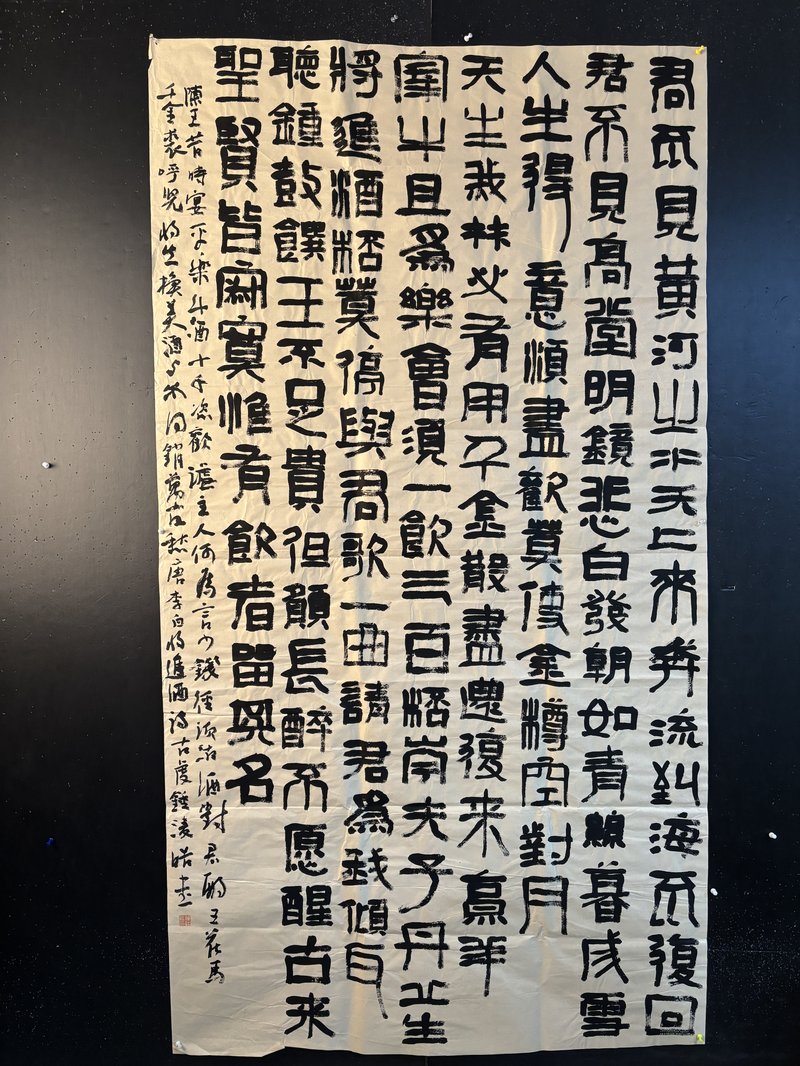 君不見黃河之水天上來奔流到海不復回
君不見高堂明鏡悲白發朝如青絲暮成雪
人生得意須盡歡莫使金樽空對月
天生我材必有用千金散盡還復來烹羊
宰牛且為樂會須一飲三百桮岑夫子丹丘生
將進酒桮莫停與君歌一曲請君為我傾耳
聽鐘鼓饌玉不足貴但願長醉不愿醒古來
聖賢皆寂寞惟有飲者留其名
陳王昔時宴平樂斗酒十千恣歡謔主人何為言少錢徑須沽酒對君酌五花馬
千金裘呼兒將出換美酒與爾同銷萬古愁唐李白將進酒詩古度鍾凌